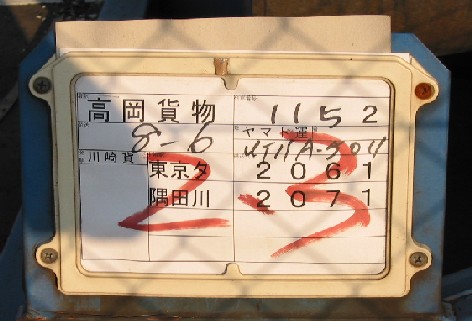 高岡貨物 1152
8-6 ヤマト運
川崎貨 UT11A-5011
東京タ 2061
隅田川 2071
2-3